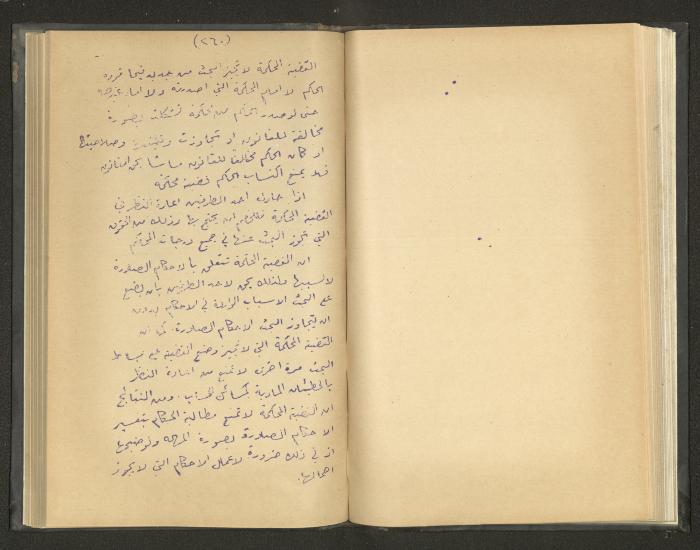 (٢٦٠)
القضية المحكمة لا تجيز البحث من جديد فيما قرره
الحكم لا امام المحكمة التي اصدرته ولا امام غيرها
حتى لو صدر الحكم من محكمة تشكلت بصورة
مخالفة للقانون او تجاوزت وظيفتها وصلاحيتها
او كان الحكم مخالفا للقانون ماسا بحق القانون
فلا يمنع اكتساب الحكم قضية محكمة
اذا حاول احد الطرفين اعادة النظر في
القضية المحكمة فللخصم ان يحتج بها وذلك من الحقوق
التي يجوز البحث عنها في جميع درجات المحاكم
ان القضية المحكمة تتعلق بالاحكام الصادرة
لا لسببها ولذلك يحق لاحد الطرفين بان يضع
على البحث الاسباب الواردة في الاحكام بدون
ان يتجاوز البحث الاحكام الصادرة. كما ان
القضية المحكمة التي لا تجيز وضع القضية على بساط
البحث مرة اخرى لا تمنع من اعادة النظر
بالخطيئات المادية كمسائل الحساب. ومن النتائج
ان القضية المحكمة لا تمنع مطالبة الحكام بتفسير
الاحكام الصادرة بصورة وتوضيحها
اذ في ذلك ضرورة لاعمال الاحكام التي لا يجوز
اهمالها.